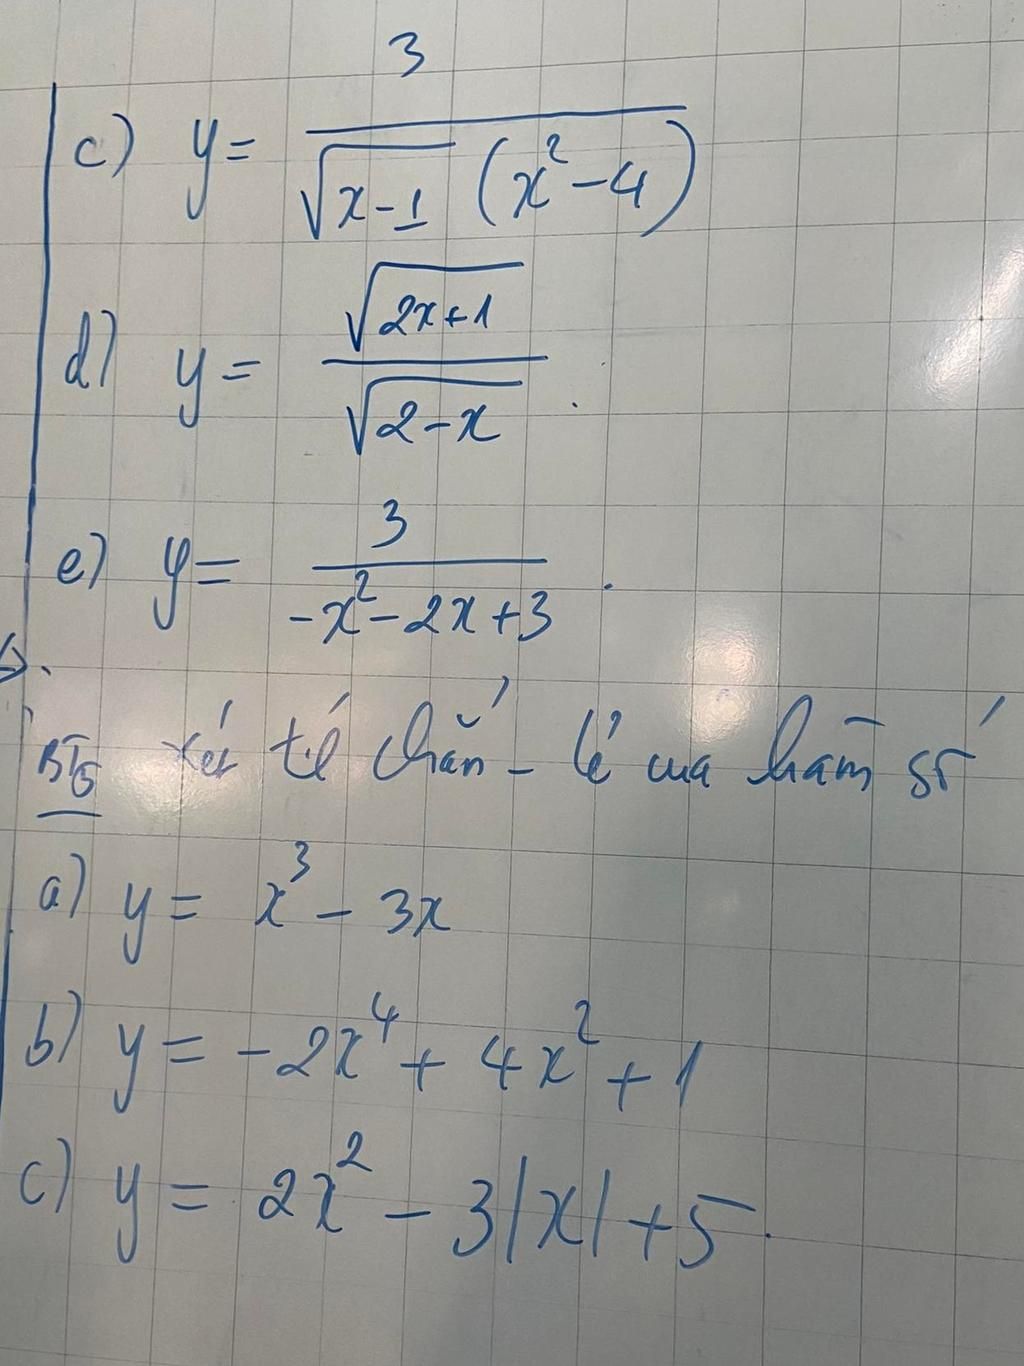 c) y = 3 / (√(x-1) (x²-4))
d) y = √(2x+1) / √(2-x) .
e) y = 3 / (-x²-2x+3) .
BT5 xét tc chẵn - lẻ của hàm số
a) y = x³ - 3x
b) y = -2x⁴ + 4x² + 1
c) y = 2x² - 3|x| + 5.